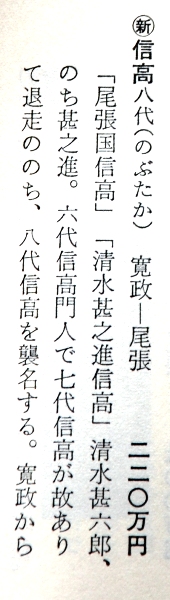 ㊟信高八代(のぶたか) 寛政―尾張 二二〇万円
「尾張国信高」「清水甚之進信高」清水甚六郎、
のち甚之進。六代信高門人で七代信高が故あり
て退走ののち、八代信高を襲名する。寛政から